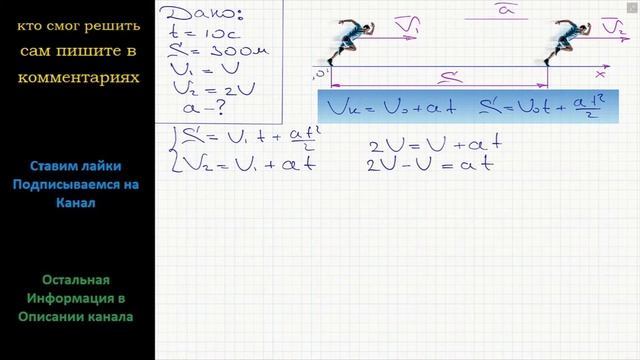 кто смог решить
сам пишите в
комментариях
Ставим лайки
Подписываемся на
Канал
Остальная
Информация в
Описании канала
Дано:
t = 10с
S = 300м
V₁ = V
V₂ = 2V
a - ?
a
V₁
V₂
0
S
x
Vₖ = V₀ + at S = V₀t + at²/2
S = V₁t + at²/2
V₂ = V₁ + at
2V = V + at
2V - V = at